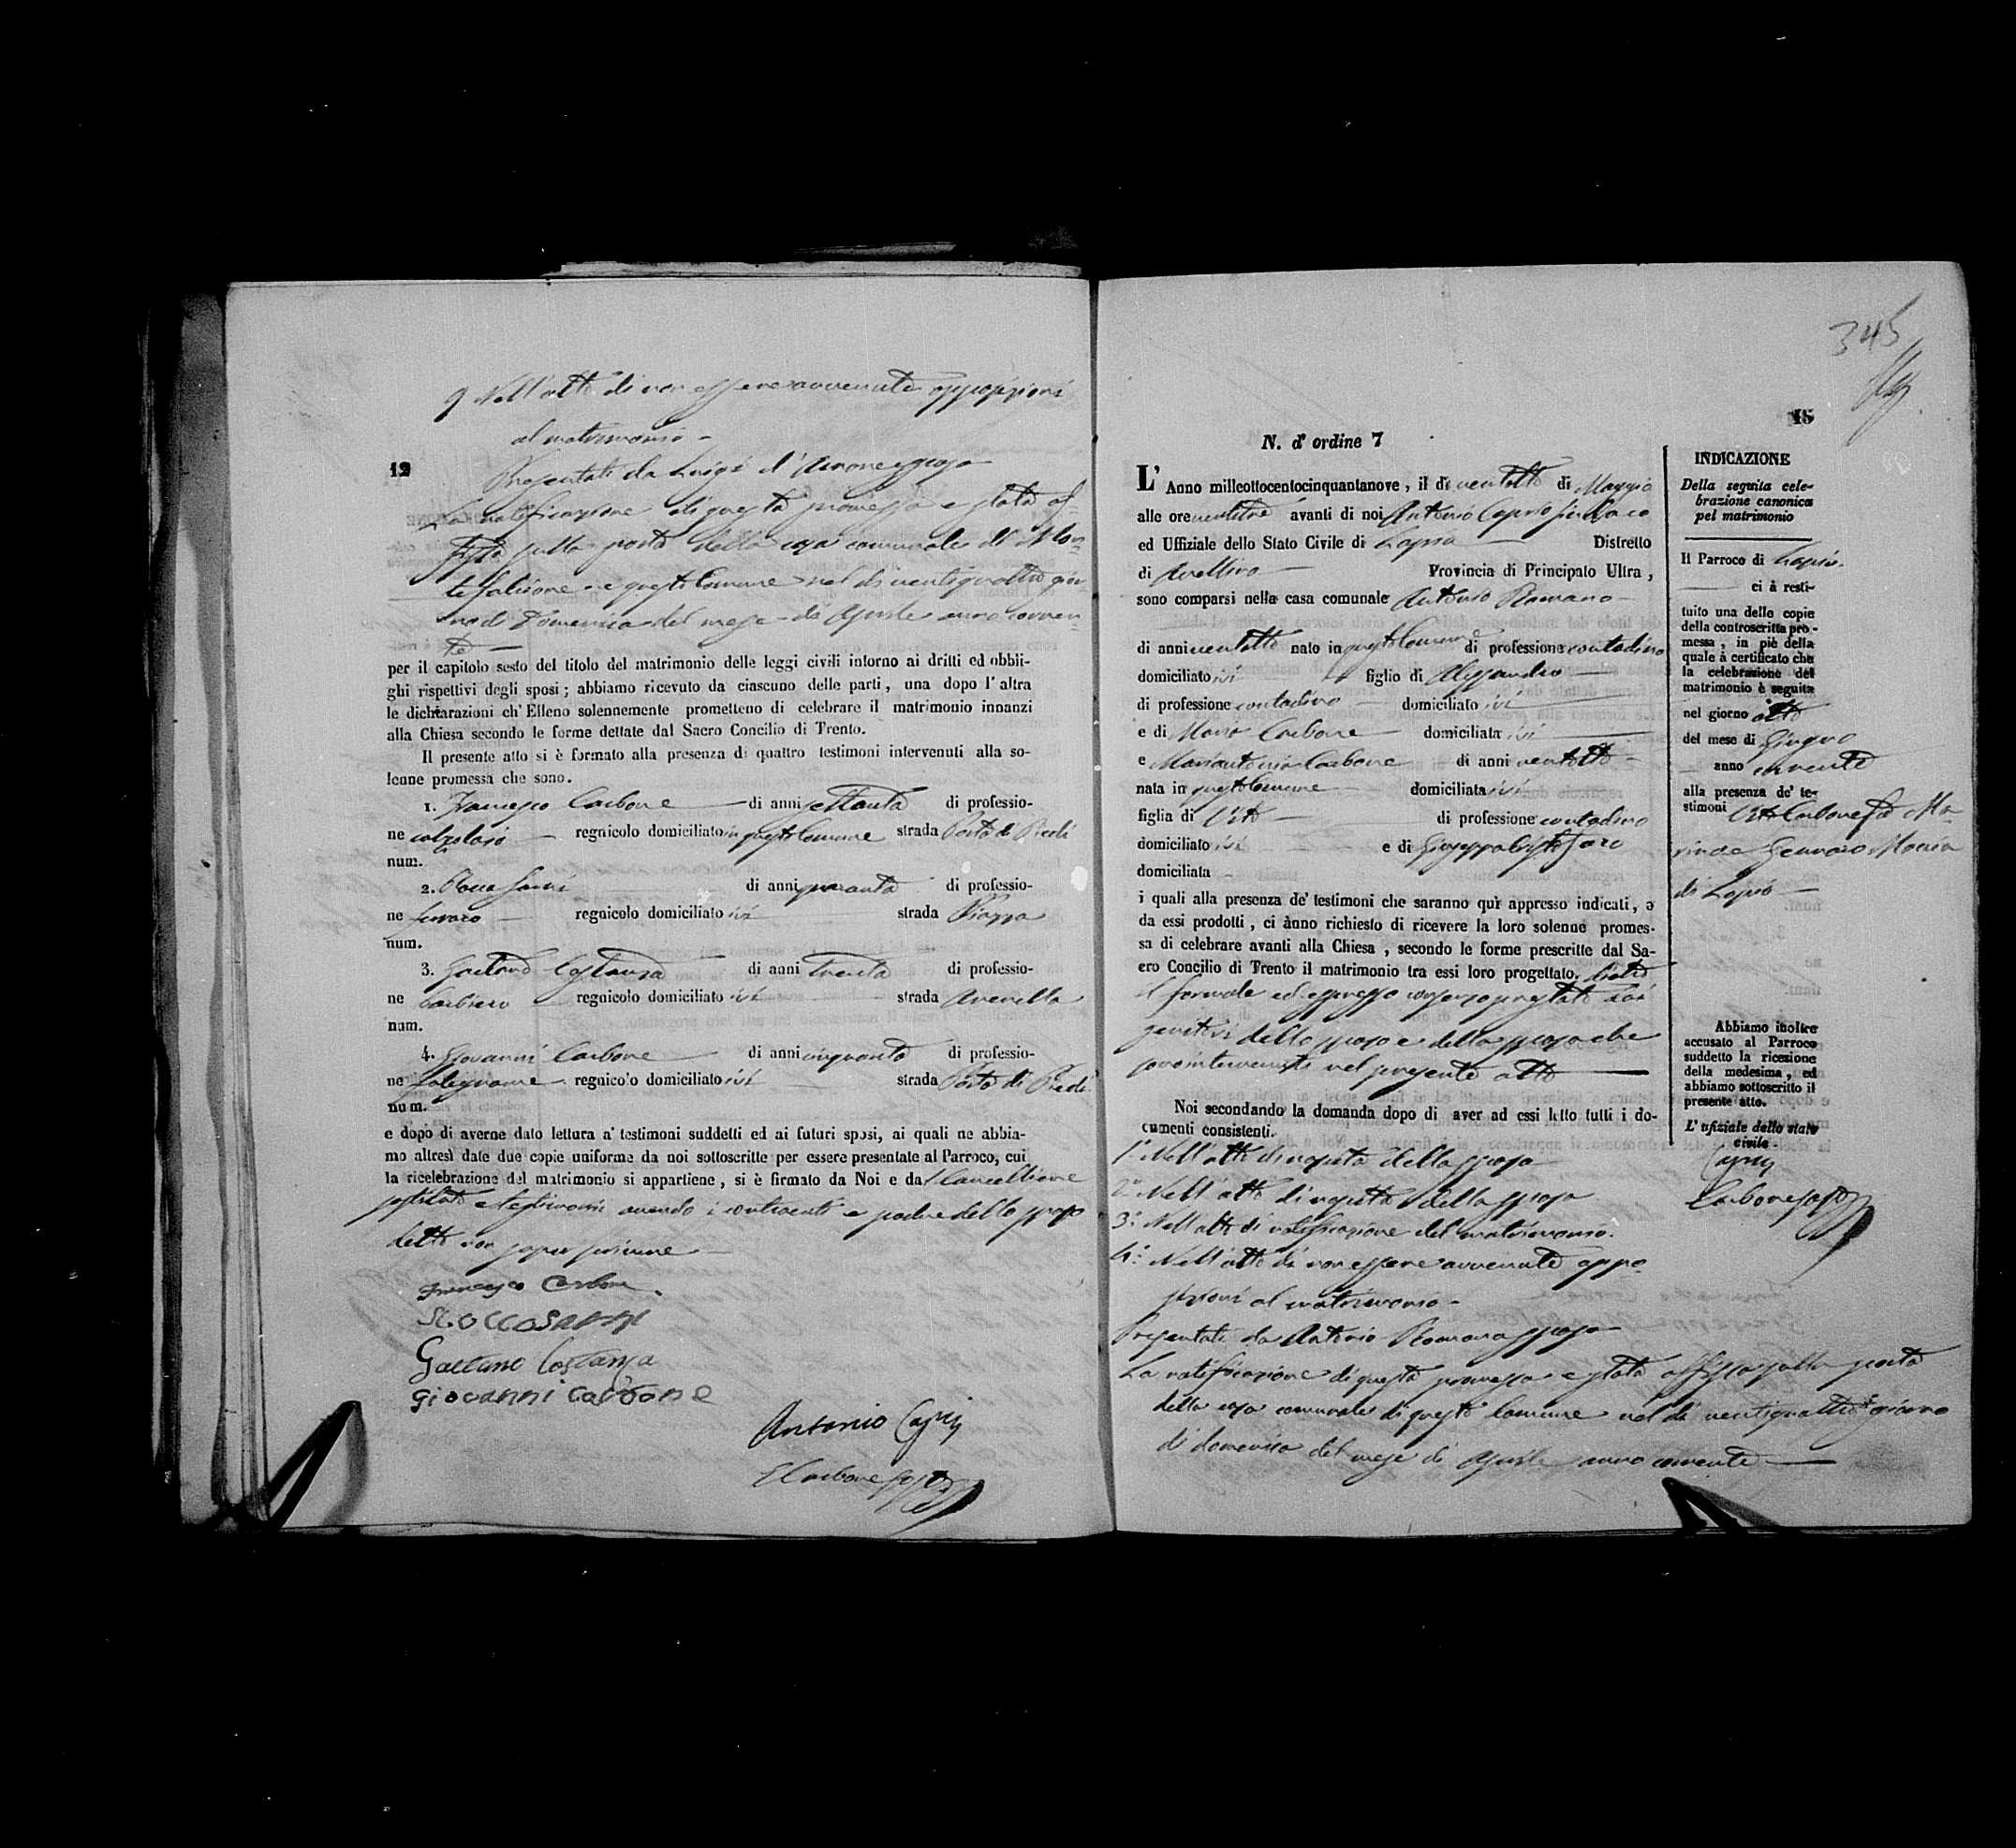 9 Nell'atto di non essere avvenute opposizioni
al matrimonio -
12
Presentati da Luigi d'Amone sposo
La notificazione di questa promessa è stata af-
fissa sulla porta della casa comunale di Mon-
te falcione e questo Comune nel dì ventiquattro gior-
no di Domenica del mese di Aprile anno corren-
te —
per il capitolo sesto del titolo del matrimonio delle leggi civili intorno ai dritti ed obbli-
ghi rispettivi degli sposi; abbiamo ricevuto da ciascuno delle parti, una dopo l'altra
le dichiarazioni ch'Elleno solennemente prometteno di celebrare il matrimonio innanzi
alla Chiesa secondo le forme dettate dal Sacro Concilio di Trento.
Il presente atto si è formato alla presenza di quattro testimoni intervenuti alla so-
lenne promessa che sono.
1. Francesco Carbone di anni settanta di professio-
ne calzolaio regnicolo domiciliato in questo Comune strada Porta di Piedi
num.
2. Rocco di anni quaranta di professio-
ne ferraro regnicolo domiciliato ivi strada Piazza
num.
3. Gaetano Costanza di anni trenta di professio-
ne barbiero regnicolo domiciliato ivi strada
num.
4. Giovanni Carbone di anni cinquanta di professio-
ne falegname regnicolo domiciliato ivi strada Porta di Piedi
num.
e dopo di averne dato lettura a' testimoni suddetti ed ai futuri sposi, ai quali ne abbia-
mo altresì date due copie uniforme da noi sottoscritte per essere presentate al Parroco, cui
la ricelebrazione del matrimonio si appartiene, si è firmato da Noi e dal Cancelliere
sostituto e testimoni avendo i contraenti e padre dello sposo
detto non saper scrivere —
Francesco Carbone
Gaetano Costanza
Giovanni Carbone
Antonio Caprio
Carbone sost
345
15
N. d'ordine 7
L'Anno millottocentocinquantanove, il dì ventotto di Maggio
alle ore ventitre avanti di noi Antonio Caprio Sindaco
ed Uffiziale dello Stato Civile di Lapio Distretto
di Avellino Provincia di Principato Ultra,
sono comparsi nella casa comunale Antonio Romano
di anni ventotto nato in questo Comune di professione contadino
domiciliato ivi figlio di Alessandro
di professione contadino domiciliato ivi
e di Maria Carbone domiciliata ivi
e Mariantonia Carbone di anni ventotto
nata in questo Comune domiciliata ivi
figlia di Vito di professione contadino
domiciliato ivi e di Giuseppa Cristofaro
domiciliata
i quali alla presenza de' testimoni che saranno qui appresso indicati, e
da essi prodotti, ci ànno richiesto di ricevere la loro solenne promes-
sa di celebrare avanti alla Chiesa, secondo le forme prescritte dal Sa-
cro Concilio di Trento il matrimonio tra essi loro progettato. Dietro
il formale ed espresso consenso prestato dai
genitori dello sposo e della sposa che
sono intervenuti nel presente atto —
Noi secondando la domanda dopo di aver ad essi letto tutti i do-
cumenti consistenti.
1.° Nell'atto di nascita dello sposo
2.° Nell'atto di nascita della sposa
3.° Nell'atto di notificazione del matrimonio.
4.° Nell'atto di non essere avvenute oppo-
sizioni al matrimonio -
Presentati da Antonio Romano sposo
La notificazione di questa promessa è stata affissa sulla porta
della casa comunale di questo Comune nel dì ventiquattro giorno
di domenica del mese di Aprile anno corrente —
INDICAZIONE
Della seguita cele-
brazione canonica
pel matrimonio
Il Parroco di Lapio
ci à resti-
tuito una delle copie
della controscritta pro-
messa, in piè della
quale à certificato che
la celebrazione del
matrimonio è seguita
nel giorno otto
del mese di Giugno
anno corrente
alla presenza de' te-
stimoni Vito Carbone fu Ma-
rino e Gennaro
di Lapio —
Abbiamo inoltre
accusato al Parroco
suddetto la ricezione
della medesima, ed
abbiamo sottoscritto il
presente atto.
L'ufiziale dello stato
civile.
Caprio
Carbone sost